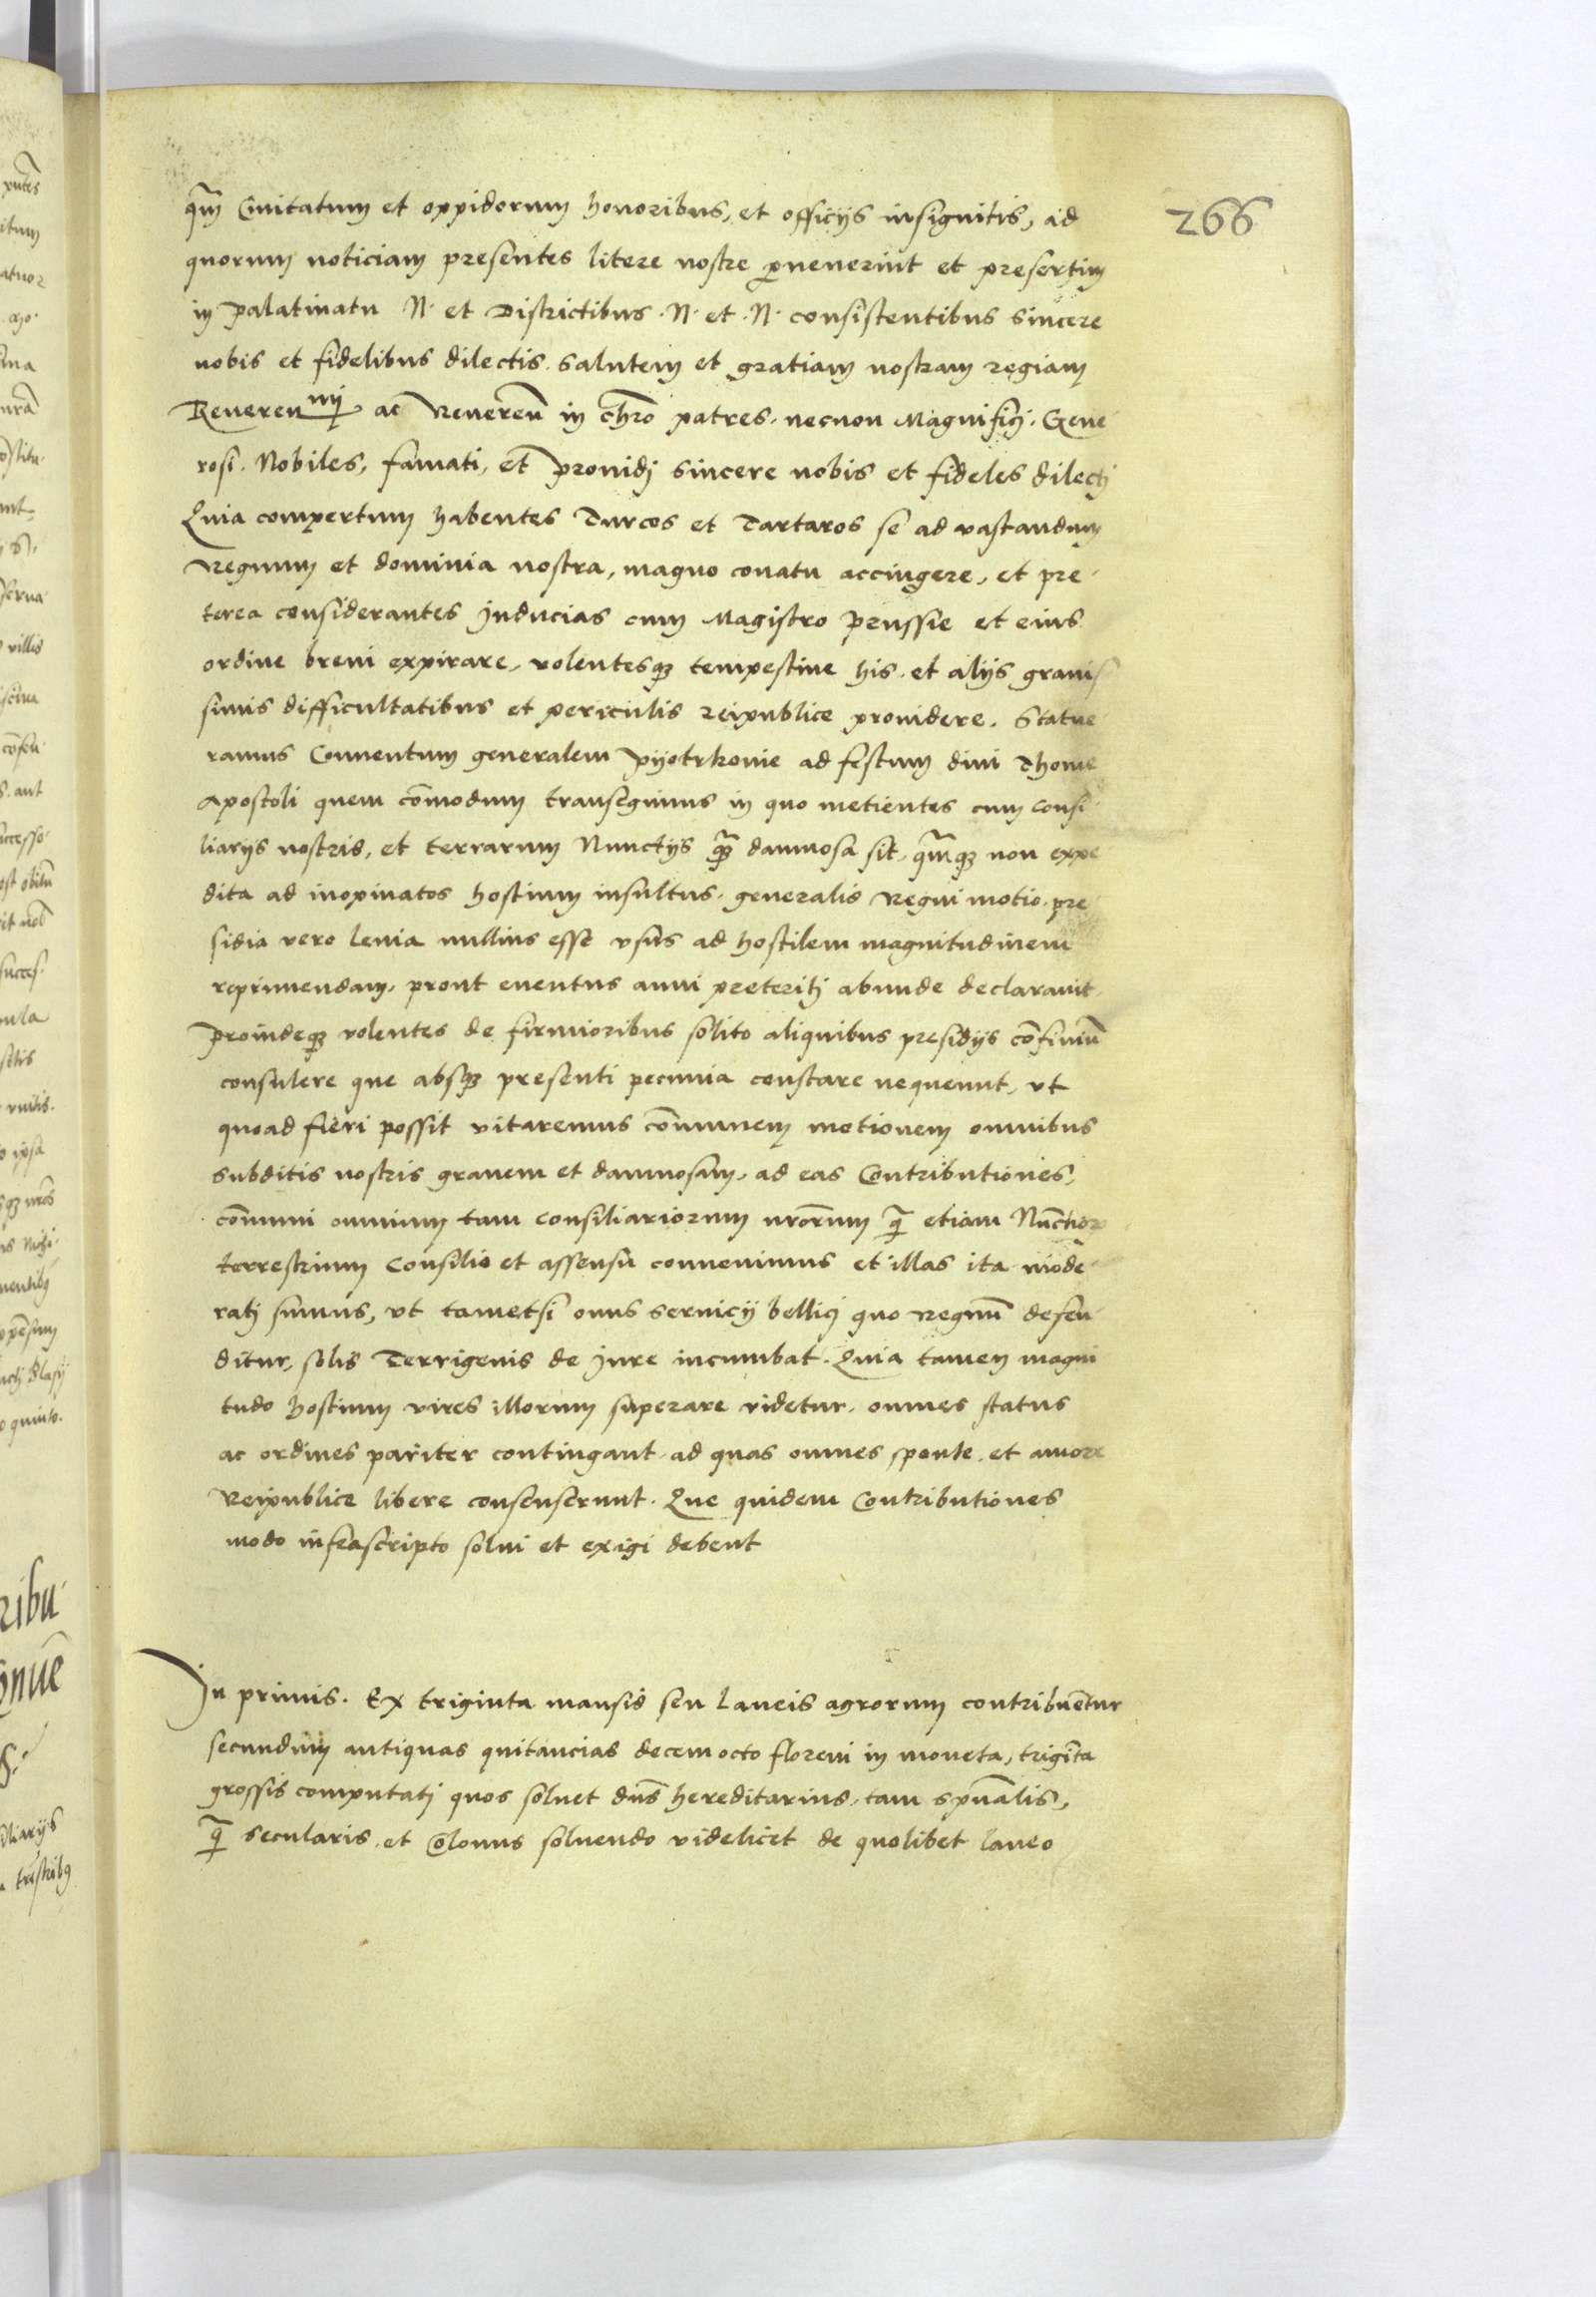 266
qm̃ Civitatum et oppidorum honoribus, et officijs insignitis, ad
quorum noticiam presentes litere nostre pervenerint et presertim
in Palatinatu N. et Districtibus .N. et .N. consistentibus sincere
nobis et fidelibus dilectis. Salutem et gratiam nostram regiam
Reverenmi ac Reveren̄ in chr̄o patres. necnon Magnifici. Gene
rosi. Nobiles, famati, et Providi sincere nobis et fideles dilecti
Quia compertum habentes Turcos et Tartaros se ad vastandum
Regnum et dominia nostra, magno conatu accingere, et pre
terea considerantes Inducias cum Magistro Prussie et eius
ordine brevi expirare, volentesq̃ tempestive his. et alijs gravis
simis difficultatibus et periculis reipublice providere. Statue
ramus Conventum generalem Pyotrkovie ad festum divi Thome
Apostoli quem com̄odum transegimus in quo metientes cum consi
liarijs nostris, et terrarum Nunctijs q̃ damnosa sit, qm̃q̃ non expe
dita ad inopinatos hostium insultus. generalis Regni motio. pre
sidia vero levia nullius esse usus ad hostilem magnitudinem
reprimendam, prout eventus anni preteriti abunde declaravit.
Proindeq̃ volentes de firmioribus solito aliquibus presidijs cōfiniū
consulere que absq̃ presenti pecunia constare nequeunt, ut
quoad fieri possit vitaremus cōmunem motionem omnibus
subditis nostris gravem et damnosam, ad eas Contributiones,
cōmuni omnium tam Consiliariorum nr̄orum q̃ etiam Nūctior
terrestrium Consilio et assensu convenimus et illas ita mode
rati sumus, ut tametsi onus servicij bellici quo Regnū defen
ditur, solis Terrigenis de Jure incumbat. Quia tamen magni
tudo hostium vires illorum superare videtur. omnes status
ac ordines pariter contingant. ad quas omnes sponte. et amore
Reipublice libere consenserunt. Que quidem Contributiones
modo infrascripto solvi et exigi debent
In primis. Ex triginta mansis seu Laneis agrorum contribuētur
secundum antiquas quitancias decem octo floreni in moneta, trigīta
grossis computati quos solvet dn̄s hereditarius, tam spūalis,
q̃ secularis. et Colonus solvendo videlicet de quolibet laneo